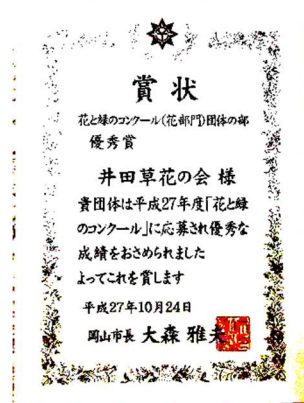 賞状
花と緑のコンクール(花部門)団体の部
優秀賞
井田草花の会 様
貴団体は平成27年度「花と緑
のコンクール」に応募され優秀な
成績をおさめられました
よってこれを賞します
平成27年10月24日
岡山市長 大森 雅夫